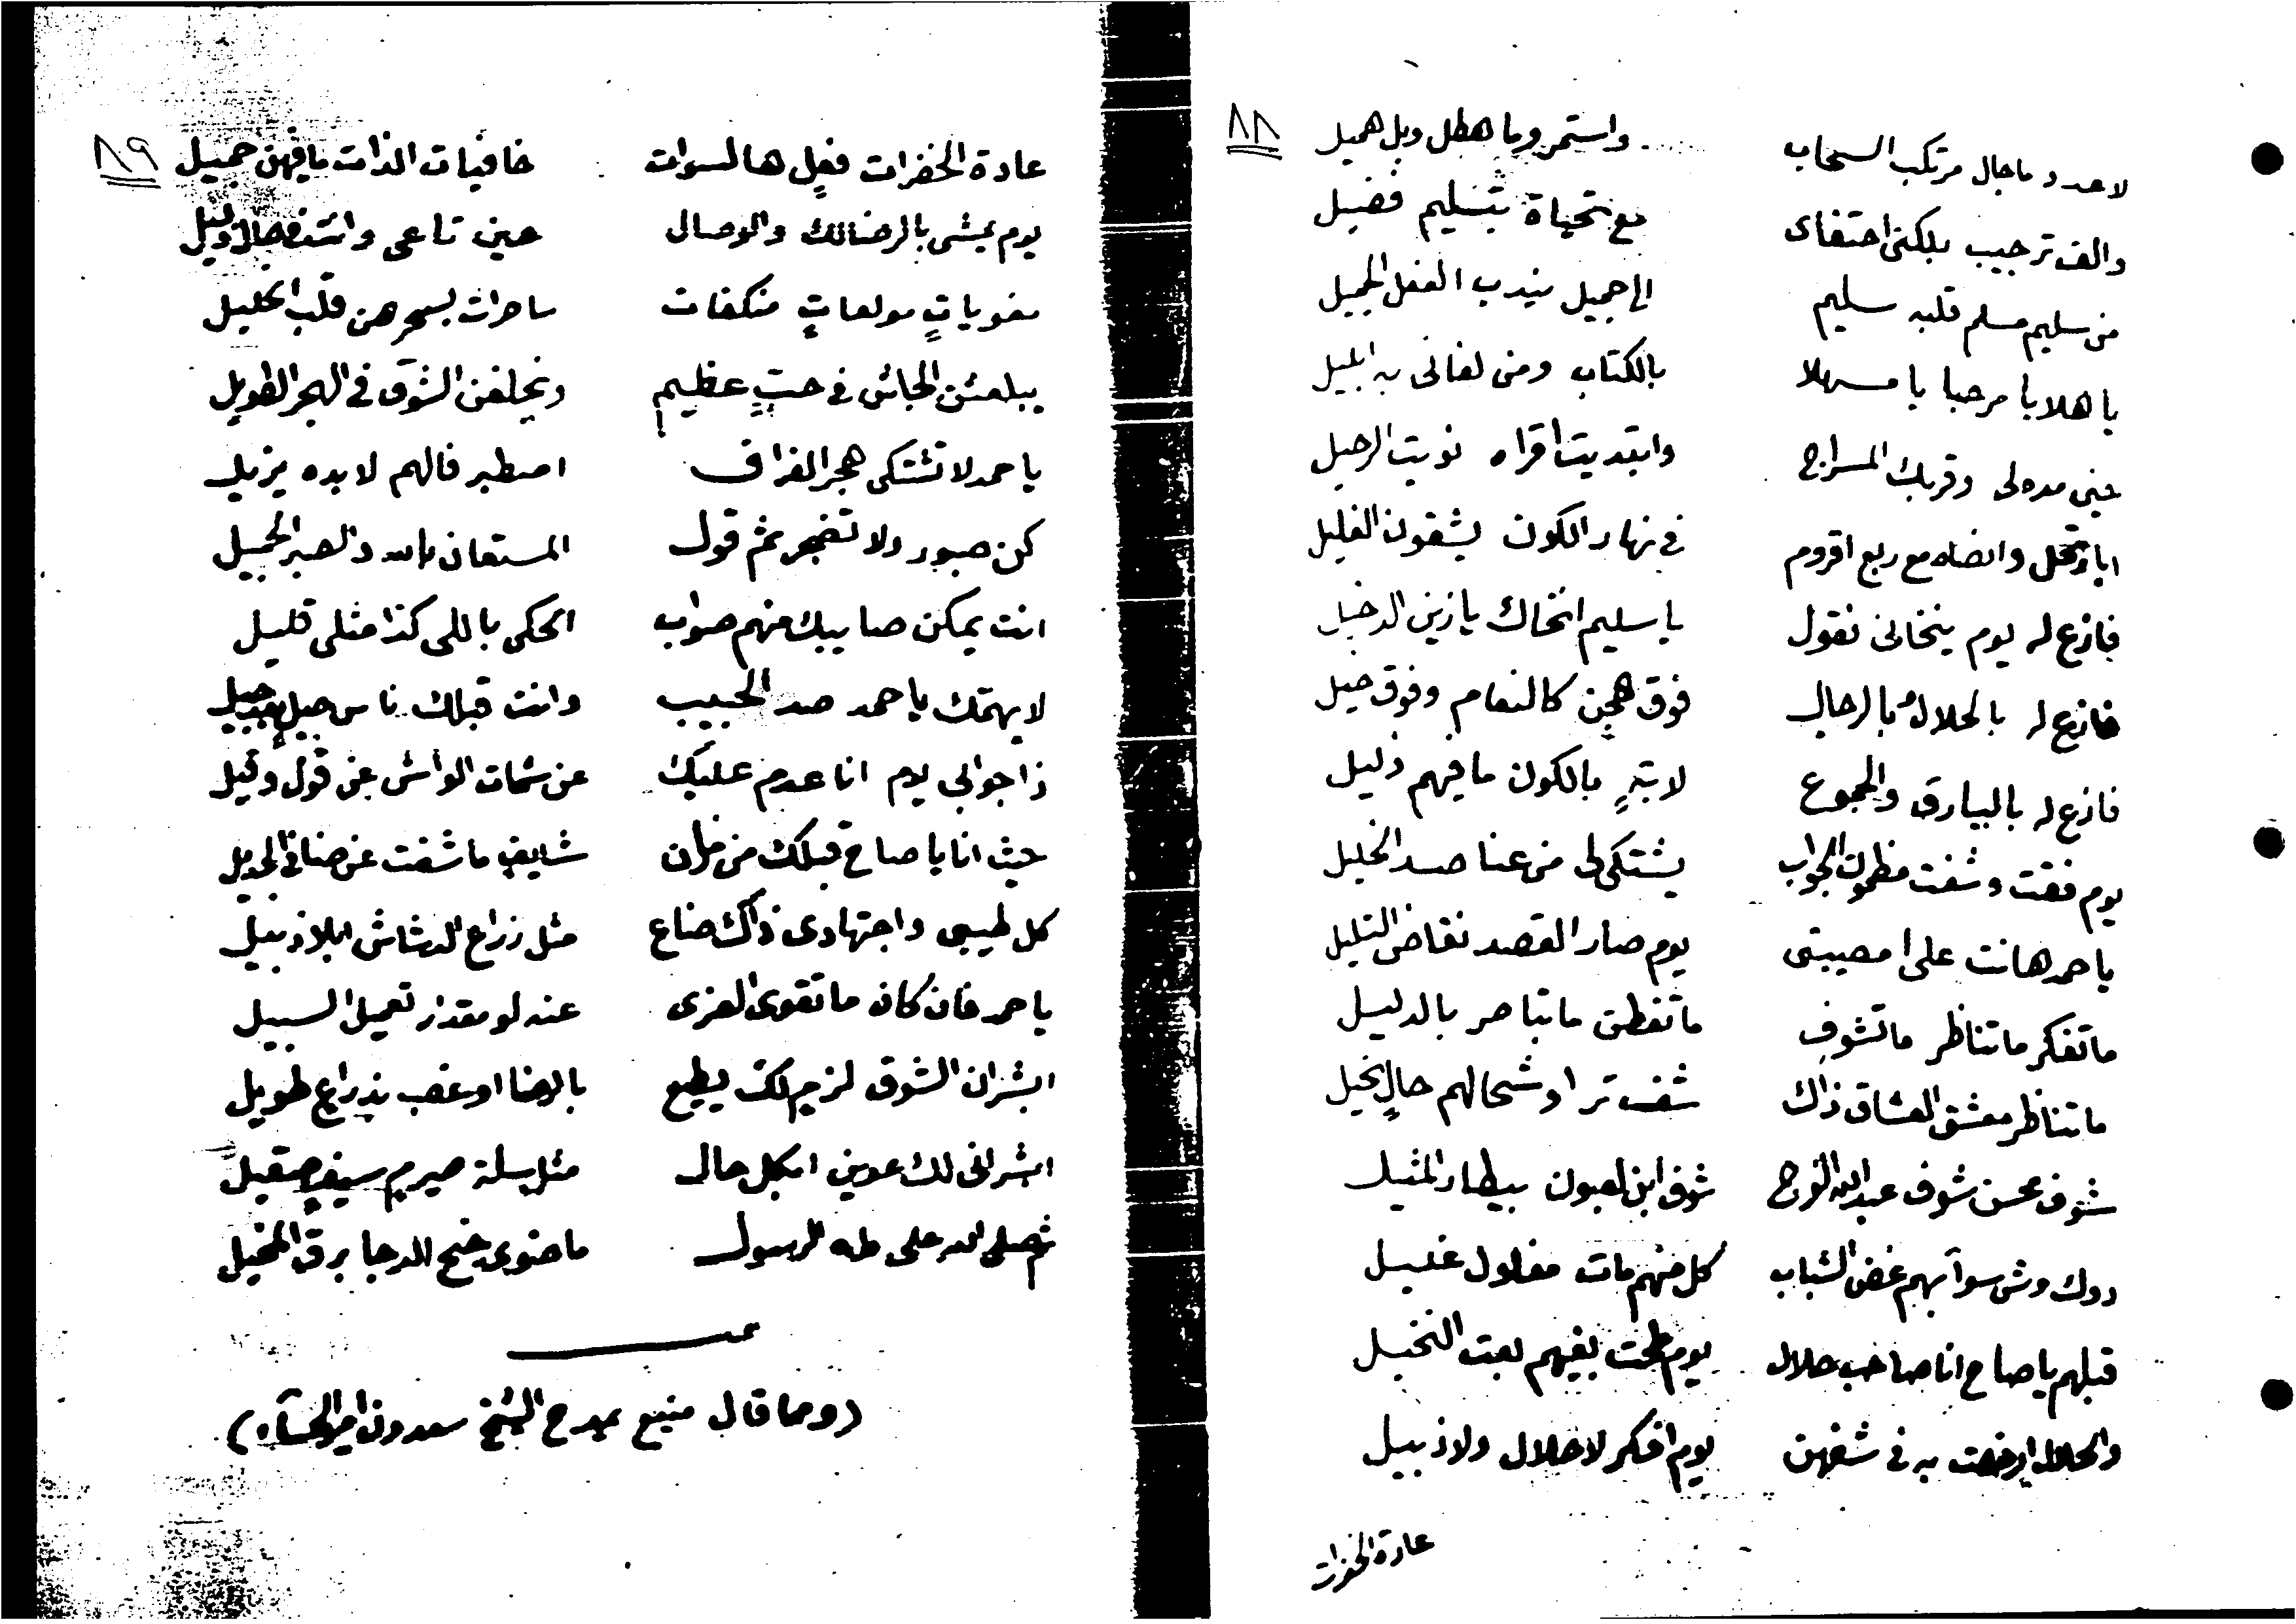 ٨٨
لاعدد ماجال مرتكب السحاب واستمر وما هطل وبل هميل
والف ترحيب بلكنى احتفاى مع تحياة بتسليم فضيل
من سليم مسلم قلبه سليم الى جميل يندب الفعل الجميل
يا هلا يا مرحبا يا مسهلا بالكتاب ومن لفانى به
حين مده لى وقربك المسراج وابتديت اقراه نويت الرحيل
مع ربع اقروم فى نهار الكون يشفون الغليل
فازع له يوم ينخانى نقول يا سليم انخاك يا زبن الدخيل
فازع له بالحلال وبالرجال فوق هجن كالنعام وفوق خيل
فازع له بالبيارق والجموع لابةٍ بالكون ما فيهم ذليل
يوم فقت وشفت مظمون الجواب يشتكى لى من عنا صد الخليل
يا حمد هانت على امصيبتى يوم صار القصد نقاض الثليل
ما تفكر ما تناظر ما تشوف ما تفطن ما تباصر بالدليل
ما تناظر معشق العشاق ذاك شفت ترا وشحالهم حالٍ نحيل
شوف محسن شوف عبدالله الفرج شوف ابن لعبون بيطار المثيل
دوك وش سوآ بهم غض الشباب كل منهم مات مغلول عليل
قبلهم يا صاح انا صاحب حلال يوم طحت بغيهم بعت النخيل
والحلال ارخصت به فى شفهن يوم افكر لا حلال ولا زبيل
عادة الخفرات
٨٩
عادة الخفرات فعلٍ هالسوات خافيات الذات ما فيهن جميل
يوم يمشى بالرضا لك والوصال حين تاعى
مغوياتٍ مولعاتٍ منكفات ساحرات بسحرهن قلب الخليل
يبلعثن الجاش فى حبٍ عظيم ويخلفن الشوق فى الهجر الطويل
يا حمد لا تشتكى هجر الفراق اصطبر فالهم لابده يزيل
كن صبور ولا تضجر ثم قول المستعان بالله والصبر الجميل
انت يمكن صايبك منهم صواب الحكى باللى كذا مثلى قليل
لا يهتمك يا حمد صد الحبيب وانت قبلك ناس جيلٍ بعد جيل
ذا جوابى يوم انا عدم عليك عن شمات الواش عن قول وقيل
حيث انا يا صاح قبلك من زمان شايفٍ ما شفت عن صنا فى الجديل
كل طيبى واجتهادى ذاك ضاع مثل زراع الدشاش ابلا زبيل
يا حمد فان كان ما تقوى العزى عند لو مقدار تعميل السبيل
ابشر ان الشوق لزمٍ لك يطيع بالرضا او غصب بذراعٍ طويل
ابشر انى لك عوين ابكل حال مثل سلة صيرمٍ سيفٍ صقيل
ثم صلى الله على طه الرسول ما ضوى جنح الدجا برق المخيل
(ومما قال منيع يمدح الشيخ سعدون امير الحساء)